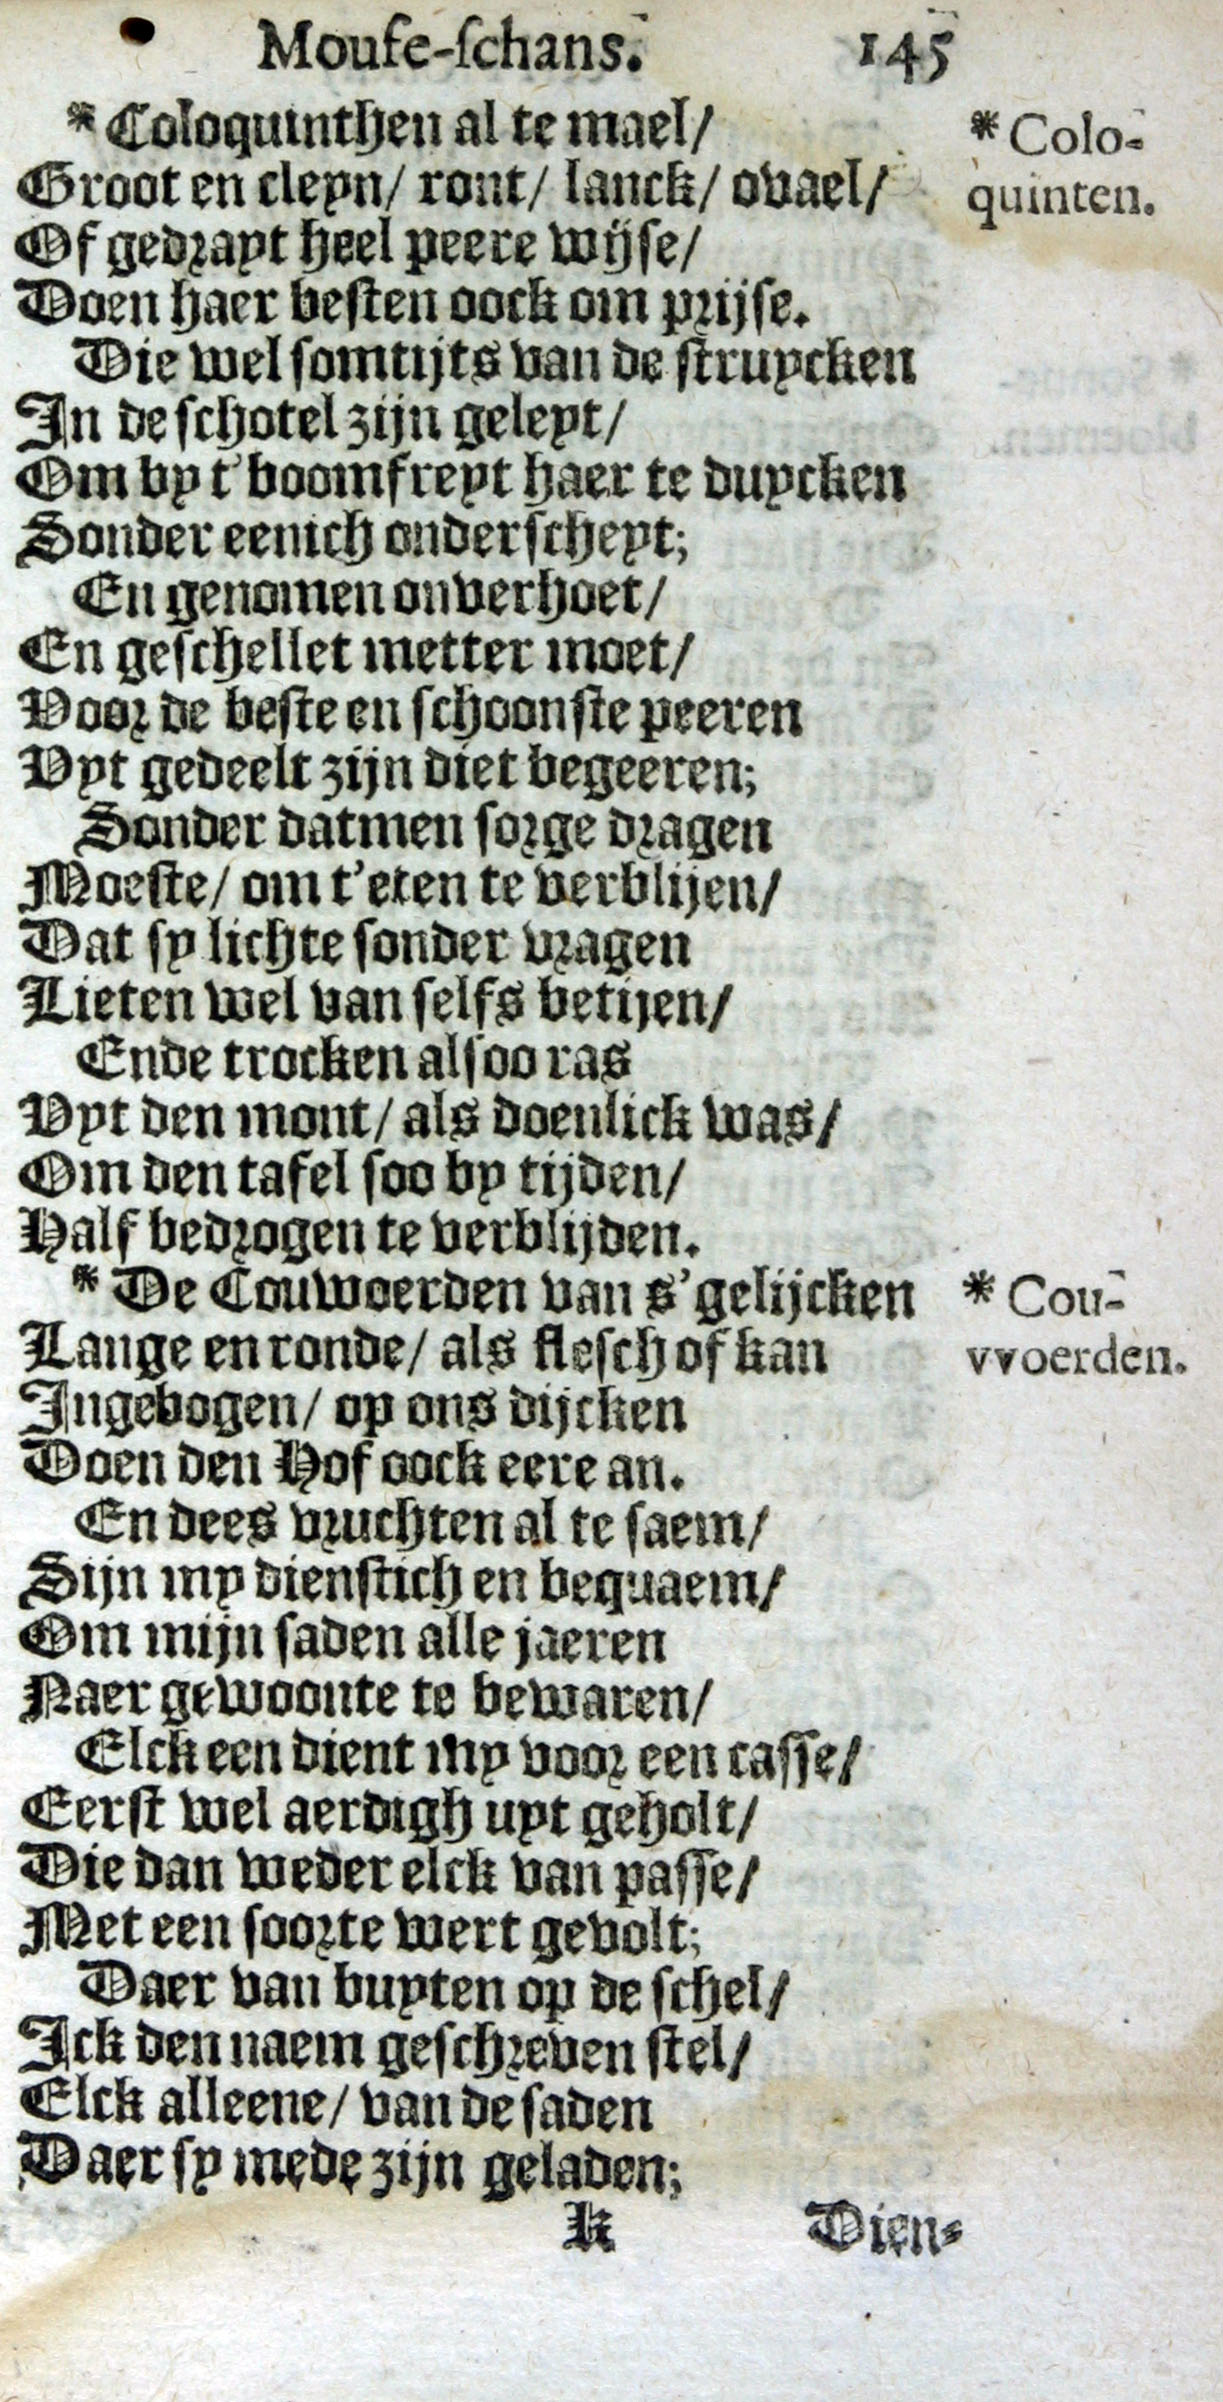 Mouſe-ſchans. 145
* Coloquinthen al te mael/
* Colo-
Groot en cleyn/ ront/ lanck/ ovael/
quinten.
Of gedꝛayt heel peere wijſe/
Doen haer beſten oock om pꝛijſe.
Die wel ſomtijts van de ſtruycken
In de ſchotel zijn geleyt/
Om by t' boomfreyt haer te duycken
Sonder eenich onderſcheyt;
En genomen onverhoet/
En geſchellet metter moet/
Vooꝛ de beſte en ſchoonſte peeren
Vyt gedeelt zijn diet begeeren;
Sonder datmen ſoꝛge dꝛagen
Moeſte/ om t'eten te verblijen/
Dat ſy lichte ſonder vꝛagen
Lieten wel van ſelfs betijen/
Ende trocken alſoo ras
Vyt den mont/ als doenlick was/
Om den tafel ſoo by tijden/
Half bedꝛogen te verblijden.
* De Couwoerden van s'gelijcken
* Cou-
Lange en ronde/ als fleſch of kan
vvoerden.
Ingebogen/ op ons dijcken
Doen den Hof oock eere an.
En dees vꝛuchten al te ſaem/
Sijn my dienſtich en bequaem/
Om mijn ſaden alle jaeren
Naer gewoonte te bewaren/
Elck een dient my vooꝛ een caſſe/
Eerſt wel aerdigh uyt geholt/
Die dan weder elck van paſſe/
Met een ſooꝛte wert gevolt;
Daer van buyten op de ſchel/
Ick den naem geſchꝛeven ſtel/
Elck alleene/ van de ſaden
Daer ſy mede zijn geladen;
K Dien-